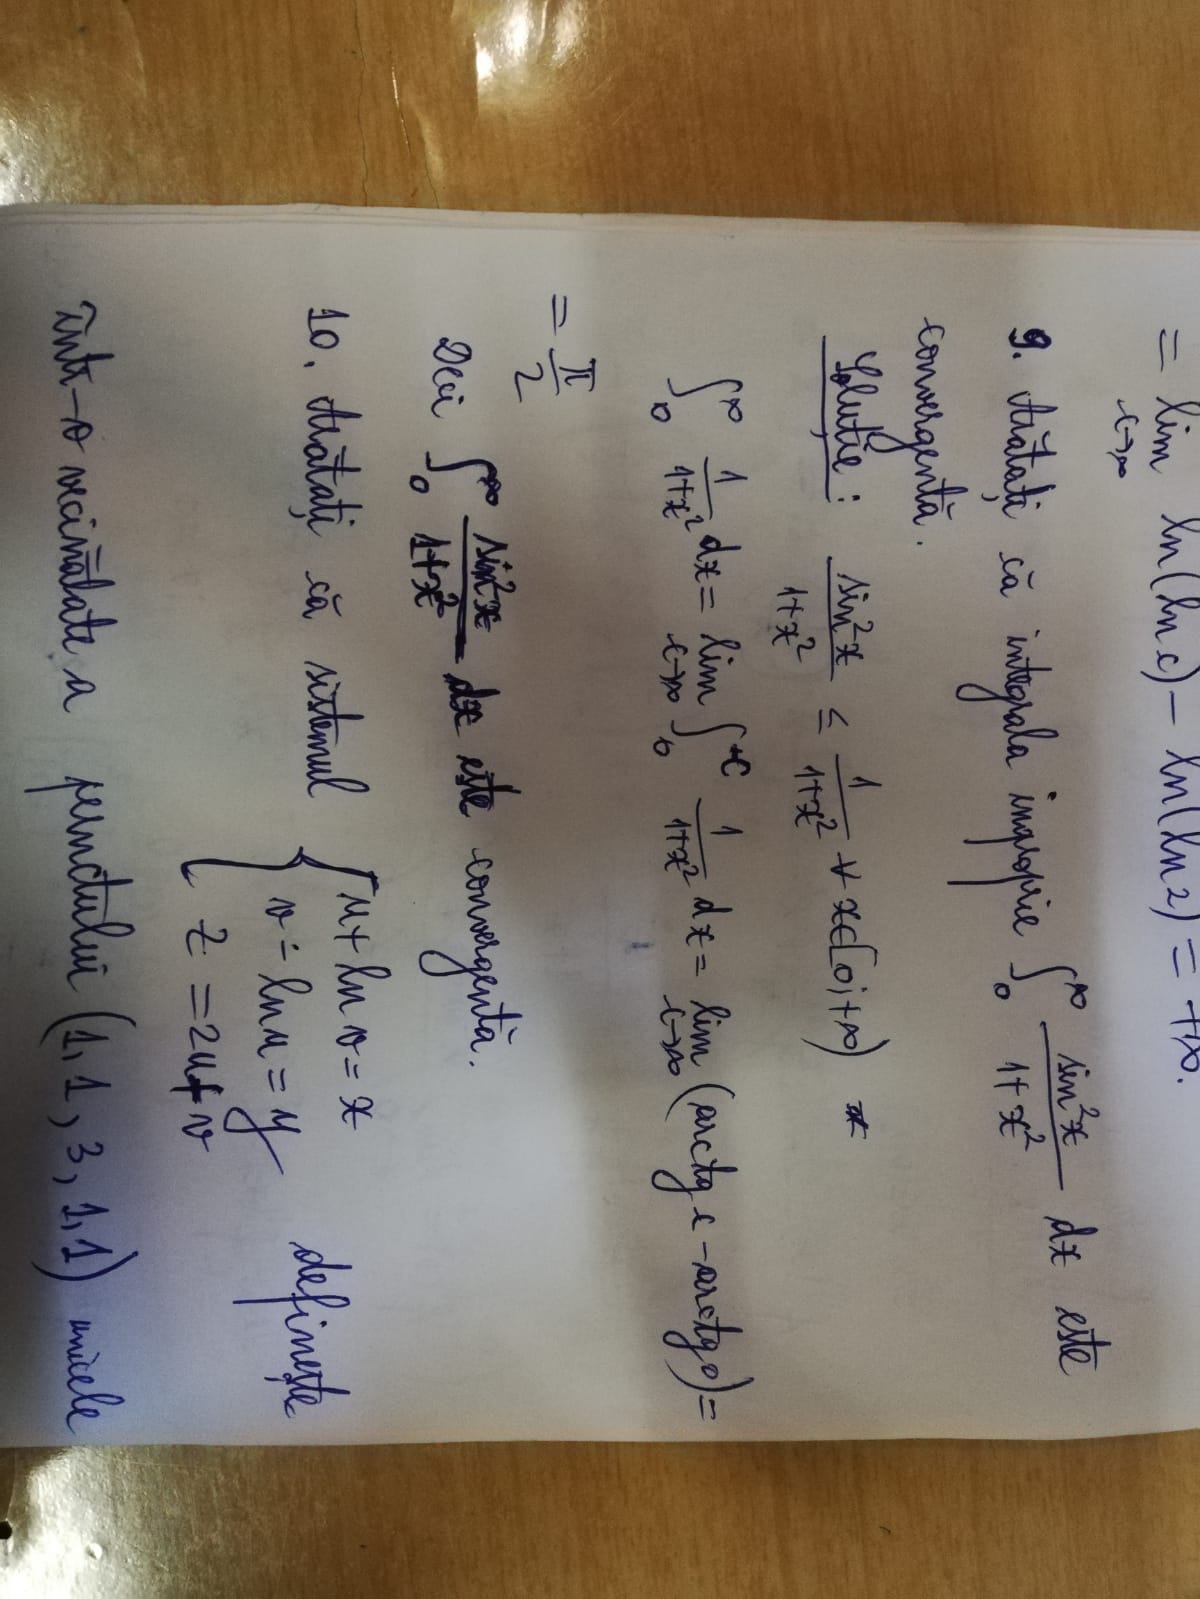 = lim ln(ln c) - ln(ln 2) = +∞.
c→∞
9. Arătați că integrala improprie ∫₀^∞ sin²x / (1+x²) dx este
convergentă.
Soluție: sin²x / (1+x²) ≤ 1 / (1+x²) ∀ x∈[0;+∞)
∫₀^∞ 1/(1+x²) dx = lim c→∞ ∫₀^c 1/(1+x²) dx = lim c→∞ (arctg c - arctg 0) =
= π/2
Deci ∫₀^∞ sin²x / (1+x²) dx este convergentă.
10. Arătați că sistemul { u + ln v = x definește
v - ln u = y
z = 2u + v
într-o vecinătate a punctului (1, 1, 3, 1, 1) unicele